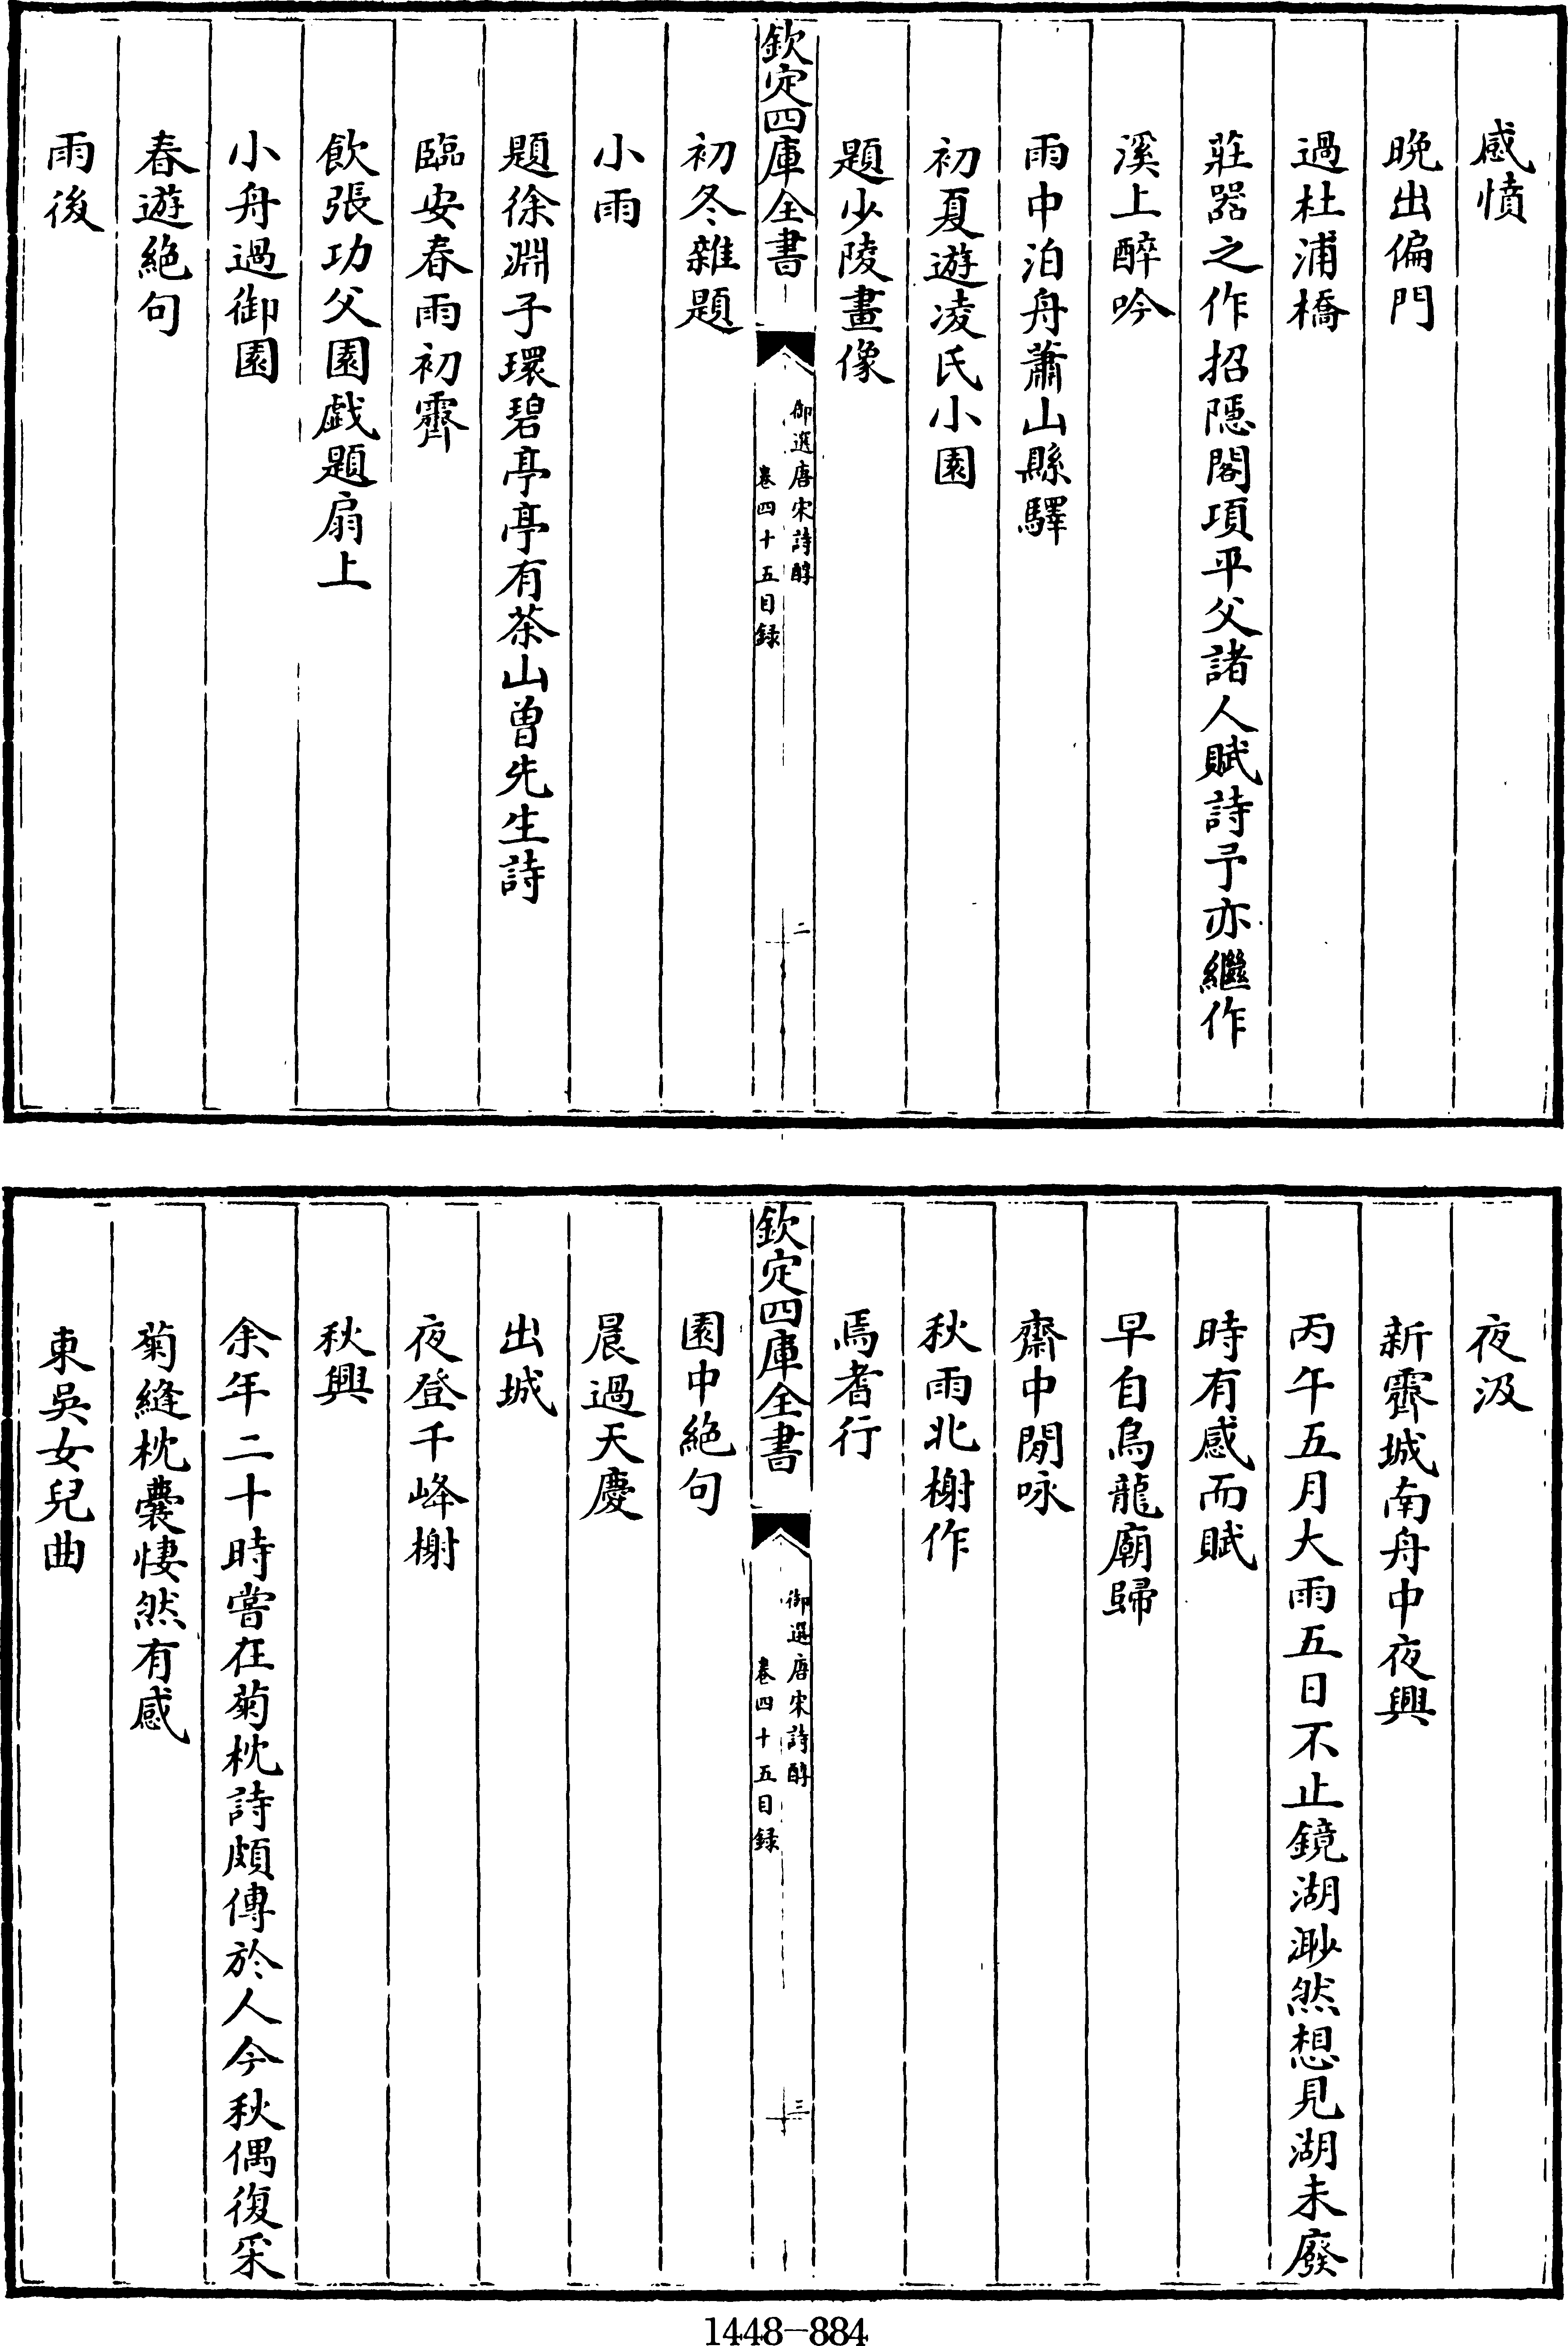 感憤
晚出偏門
過杜浦橋
莊器之作招隱閣項平父諸人賦詩予亦繼作
溪上醉吟
雨中泊舟蕭山縣驛
初夏遊凌氏小園
題少陵畫像
欽定四庫全書
御選唐宋詩醇
卷四十五目録
二
初冬雜題
小雨
題徐淵子環碧亭亭有茶山曾先生詩
臨安春雨初霽
飲張功父園戯題扇上
小舟過御園
春遊絶句
雨後
夜汲
新霽城南舟中夜興
丙午五月大雨五日不止鏡湖渺然想見湖未廢
時有感而賦
早自烏龍廟歸
齋中閒咏
秋雨北榭作
焉耆行
欽定四庫全書
御選唐宋詩醇
卷四十五目録
三
園中絶句
晨過天慶
出城
夜登千峰榭
秋興
余年二十時嘗在菊枕詩頗傳於人今秋偶復采
菊縫枕囊悽然有感
東吳女兒曲
1448-884